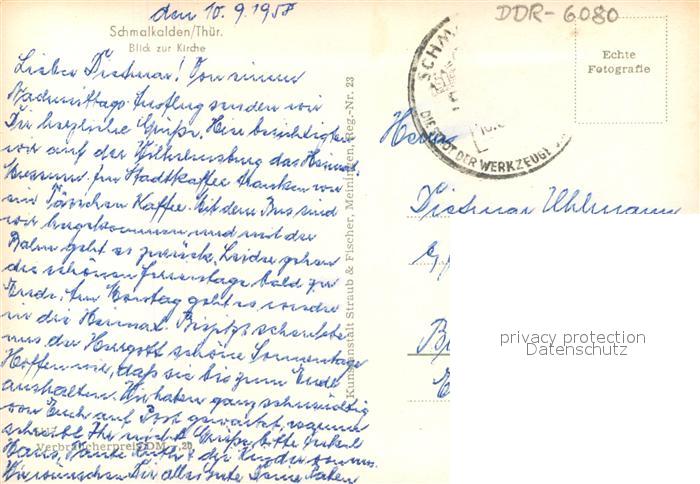 den 10.9.1958
Schmalkalden/Thür.
Blick zur Kirche
Lieber Dietmar! Von einem
Nachmittags Ausflug senden wir
Dir herzliche Grüße. Hier besichtigten
wir auf der Wilhelmsburg das Heimat-
Museum. Im Stadtkaffee tranken wir
ein Tässchen Kaffee. Mit dem Bus sind
wir hergekommen und mit der
Bahn geht es zurück. Leider gehen
die schönen Ferientage bald zu
Ende. Am Montag geht es wieder
in die Heimat. Bis jetzt schenkte
uns der Herrgott schöne Sonnentage
Hoffen wir, daß sie bis zum Ende
aushalten. Wir haben ganz sehnsüchtig
von Euch auf Post gewartet, warum
schreibt Ihr nicht. Grüße bitte
Hans, Tante Ruth + die Kinder von uns.
Wir wünschen Dir alles Gute Deine Paten
Verbraucherpreis DM -,20
Kunstanstalt Straub & Fischer, Meiningen, Reg.-Nr. 23
DDR-6080
Echte
Fotografie
SCHM
DIE STADT DER WERKZEUGE
Herrn
Dietmar Uhlmann
privacy protection
Datenschutz